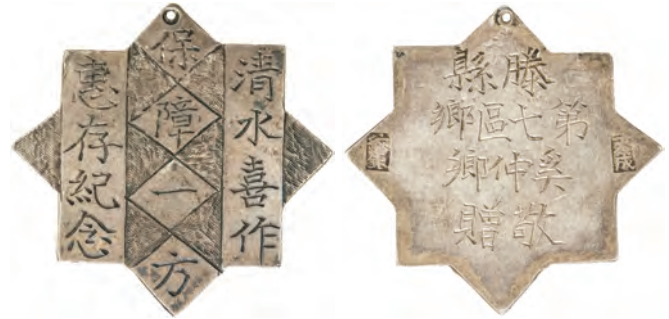 清水喜作
保障一方
惠存紀念
滕縣
第七區鄉
奚仲鄉
敬贈